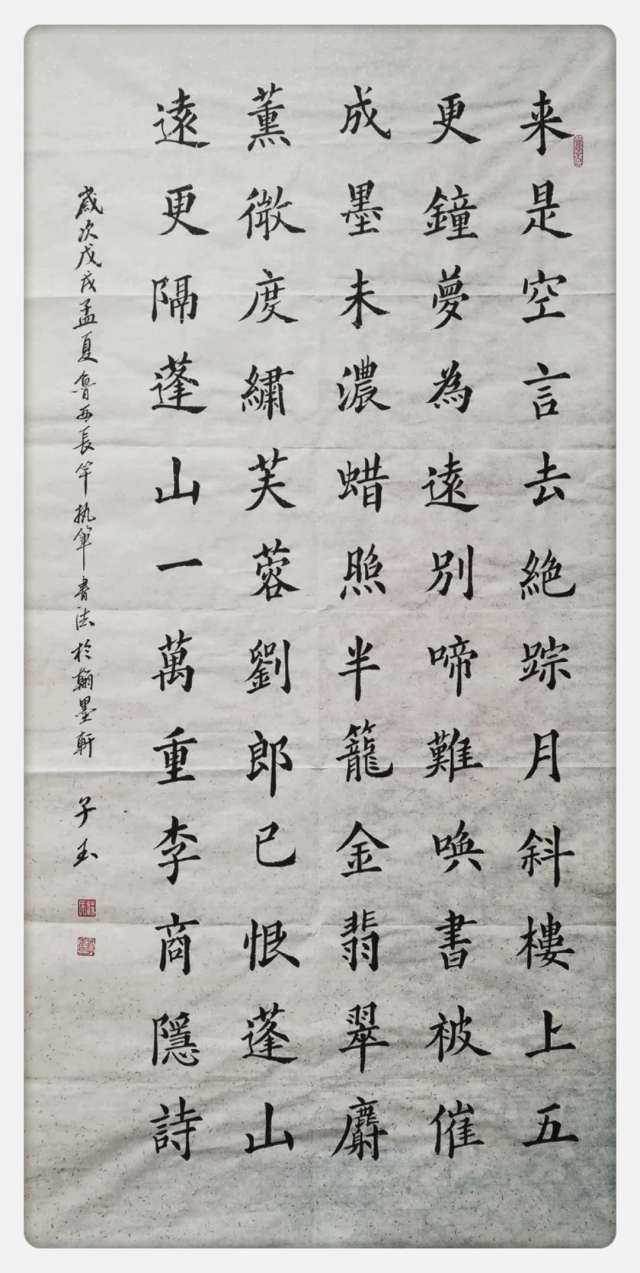 来是空言去絶踪月斜樓上五
更鐘夢為遠別啼難喚書被催
成墨未濃蜡照半籠金翡翠麝
薰微度繡芙蓉劉郎已恨蓬山
遠更隔蓬山一萬重李商隱詩
歲次戊戌孟夏魯西長竿執筆書法於翰墨軒 子玉